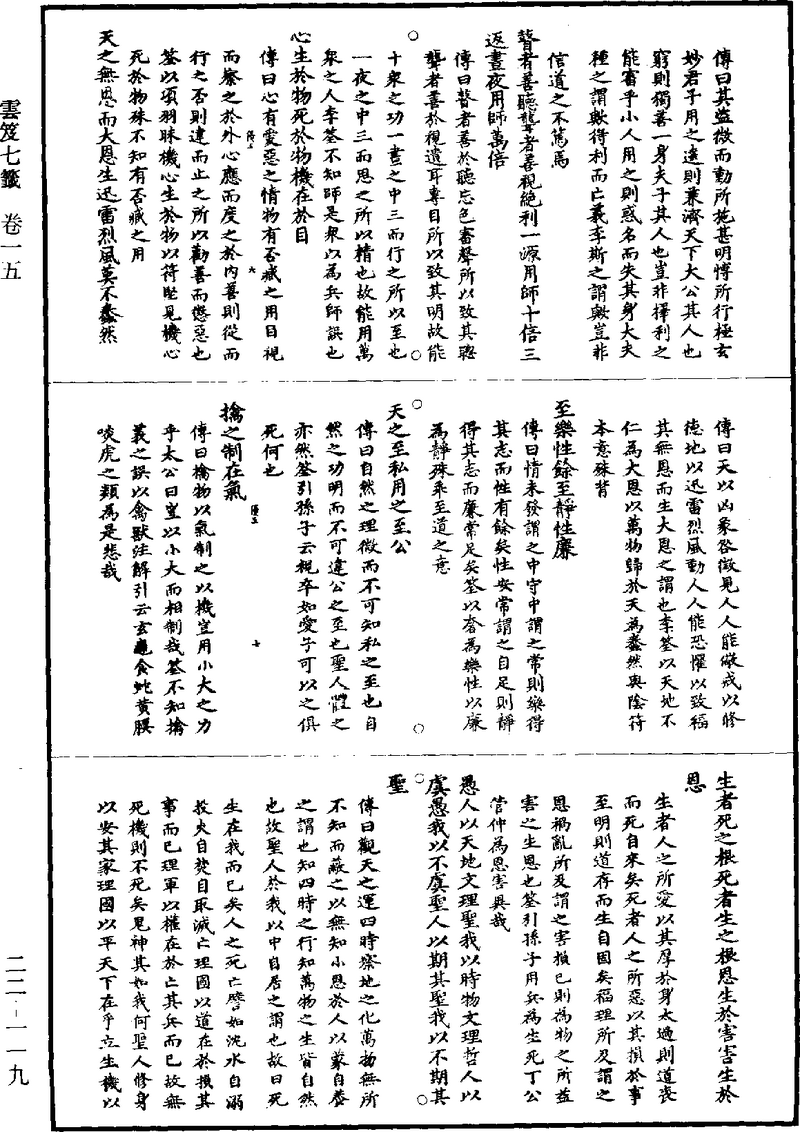 傳曰其盜微而動所施甚明博所行極玄
妙君子用之達則兼濟天下太公其人也
窮則獨善一身夫子其人也豈非擇利之
能審乎小人用之則惑名而失其身大夫
種之謂歟得利而亡義李斯之謂歟豈非
信道之不篤焉
瞽者善聽聾者善視絶利一源用師十倍三
返晝夜用師萬倍
傳曰瞽者善於聽忘色審聲所以致其聰
聾者善於視遺耳專目所以致其明故能
十衆之功一晝之中三而行之所以至也
一夜之中三而思之所以精也故能用萬
衆之人李筌不知師是衆以為兵師誤也
心生於物死於物機在於目
傳曰心有愛惡之情物有否臧之用目視
而察之於外心應而度之於内善則從而
行之否則違而止之所以勸善而懲惡也
筌以項羽昧機心生於物以符堅見機心
死於物殊不知有否臧之用
天之無恩而大恩生迅雷烈風莫不蠢然
傳曰天以凶象咎徵見人人能儆戒以修
德地以迅雷烈風動人人能恐懼以致福
其無恩而生大恩之謂也李筌以天地不
仁為大恩以萬物歸於天為蠢然與陰符
本意殊背
至樂性餘至靜性廉
傳曰情未發謂之中守中謂之常則樂得
其志而性有餘矣性安常謂之自足則靜
得其志而廉常足矣筌以奢為樂性以廉
為靜殊乖至道之意
天之至私用之至公
傳曰自然之理微而不可知私之至也自
然之功明而不可違公之至也聖人體之
亦然筌引孫子云視卒如愛子可以之俱
死何也
擒之制在氣
傳曰擒物以氣制之以機豈用小大之力
乎太公曰豈以小大而相制哉筌不知擒
義之誤以禽獸注解引云玄龜食蛇黃腰
啖虎之類為是悲哉
生者死之根死者生之根恩生於害害生於
恩
生者人之所愛以其厚於身太過則道喪
而死自來矣死者人之所惡以其損於事
至明則道存而生自固矣福理所及謂之
恩禍亂所及謂之害損己則為物之所益
害之生恩也筌引孫子用兵為生死丁公
管仲為恩害異哉
愚人以天地文理聖我以時物文理哲人以
虞愚我以不虞聖人以期其聖我以不期其
聖
傳曰觀天之運四時察地之化萬物無所
不知而蔽之以無知小恩於人以蒙自養
之謂也知四時之行知萬物之生皆自然
也故聖人於我以中自居之謂也故曰死
生在我而已矣人之死亡譬如沈水自溺
投火自焚自取滅亡理國以道在於損其
事而已理軍以權在於亡其兵而已故無
死機則不死矣鬼神其如我何聖人修身
以安其家理國以平天下在乎立生機以
雲笈七籤 卷一五
二二·一一九